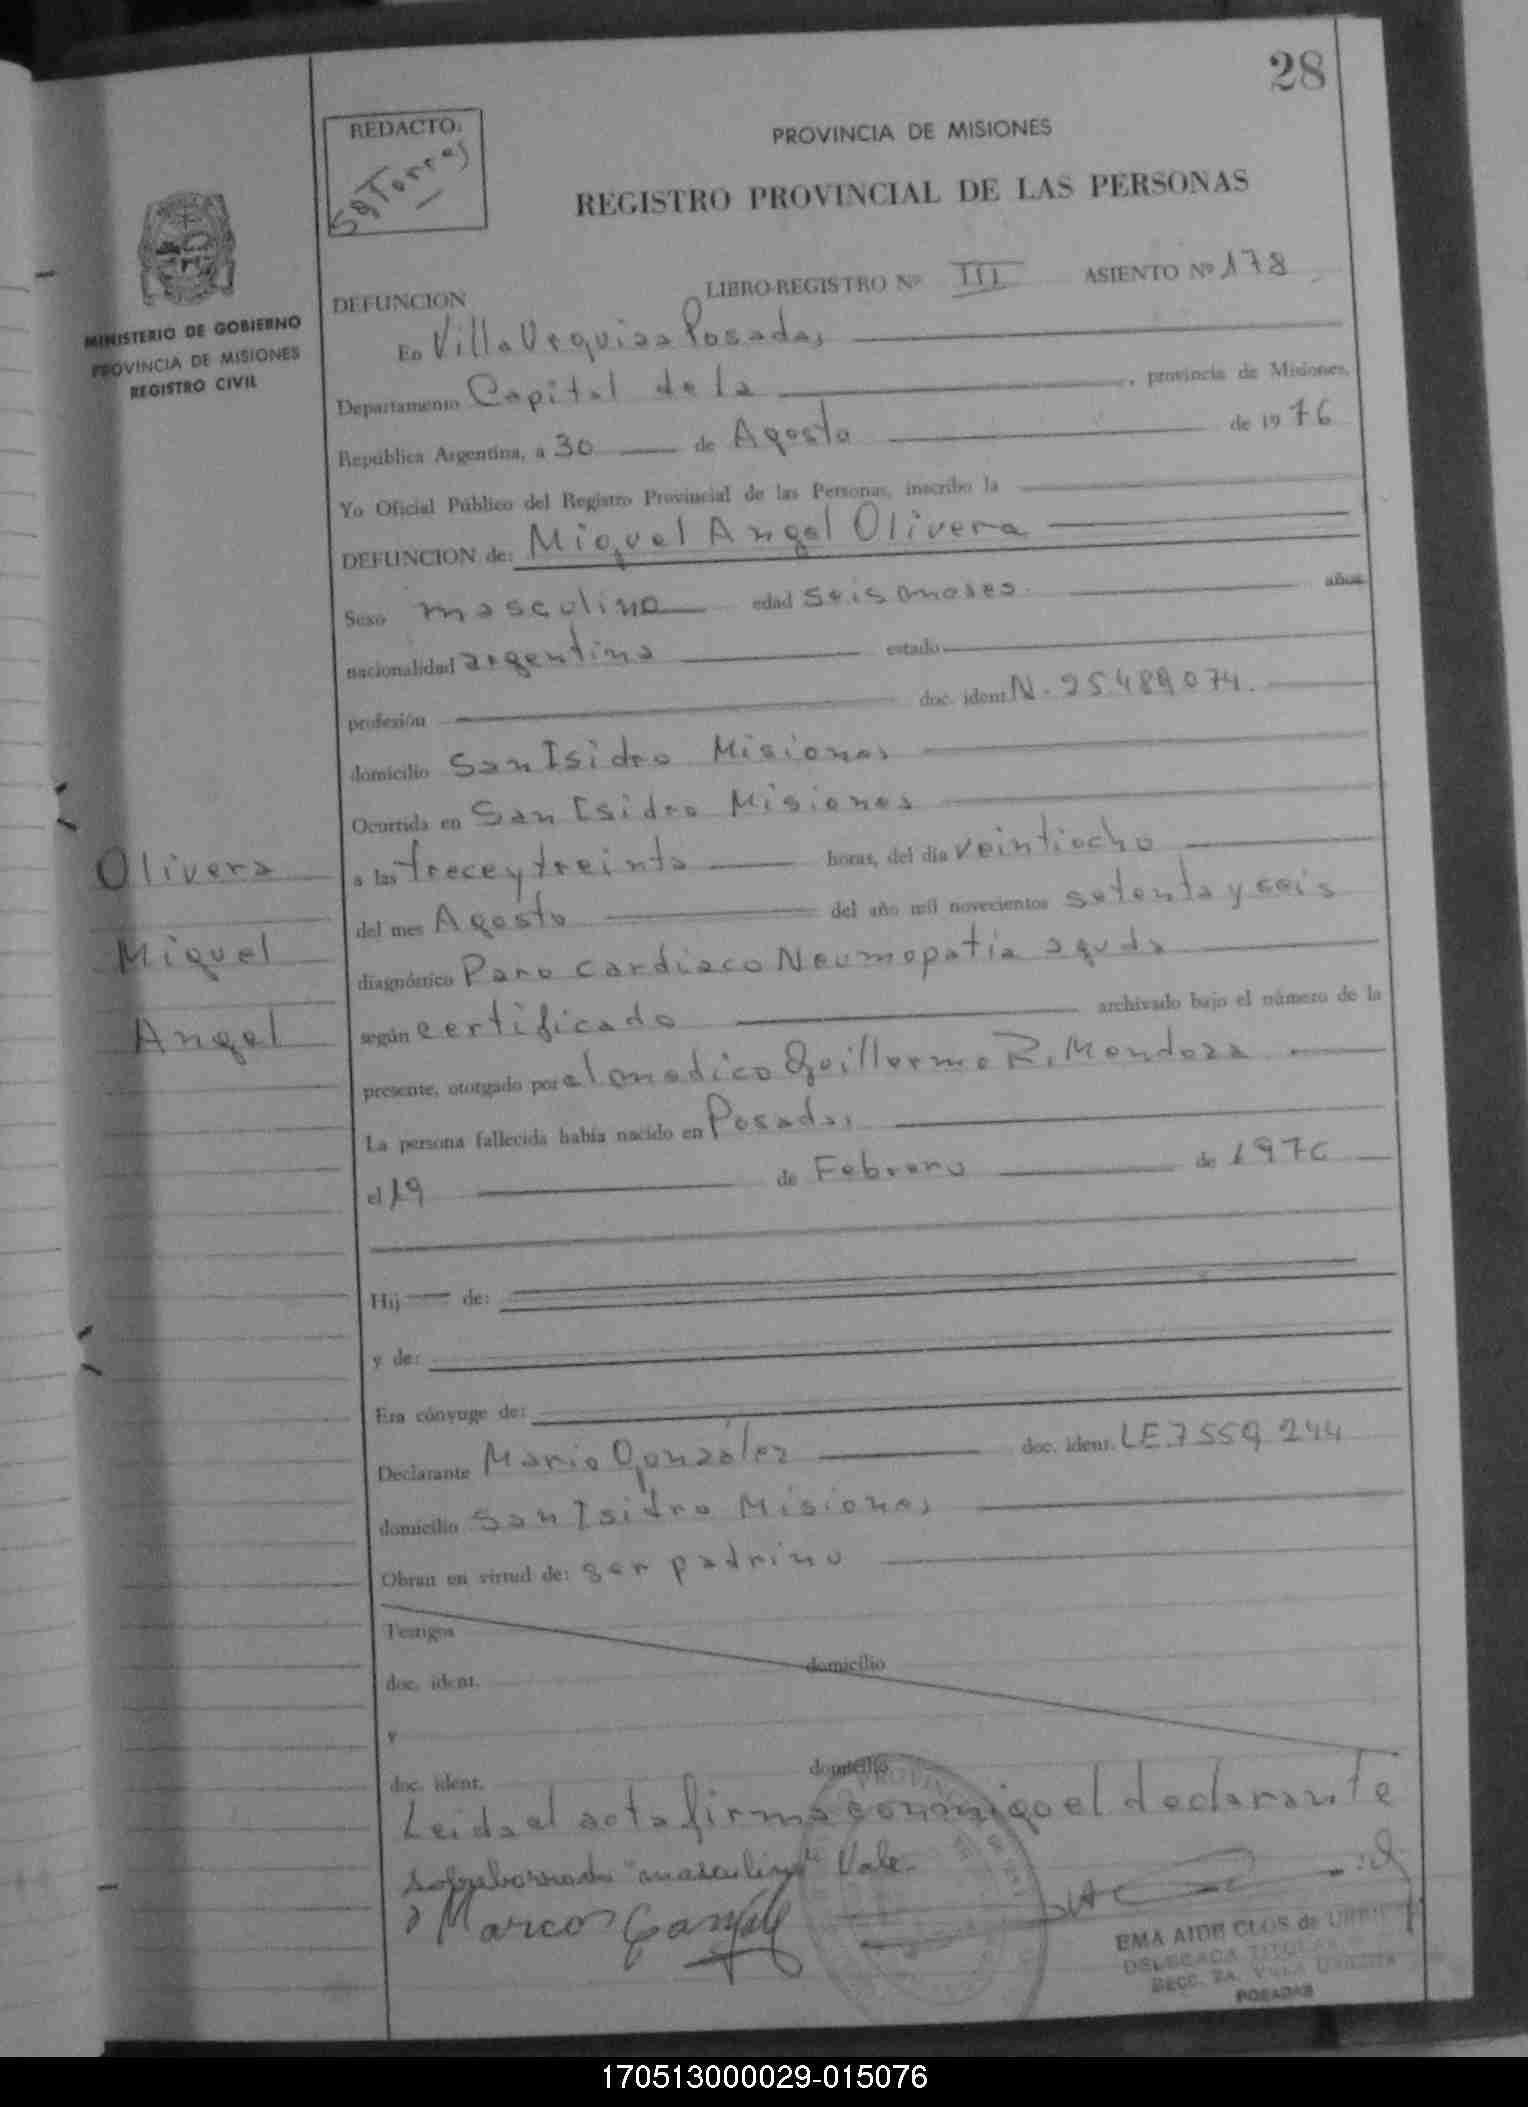 28
REDACTO:
Sg Torres
PROVINCIA DE MISIONES
REGISTRO PROVINCIAL DE LAS PERSONAS
MINISTERIO DE GOBIERNO
PROVINCIA DE MISIONES
REGISTRO CIVIL
LIBRO-REGISTRO Nº III ASIENTO Nº 178
DEFUNCION
En Villa Urquiza Posadas
Departamento Capital de la , provincia de Misiones,
República Argentina, a 30 de Agosto de 1976
Yo Oficial Público del Registro Provincial de las Personas, inscribo la
DEFUNCION de: Miguel Angel Olivera
Sexo masculino edad seis meses. años
nacionalidad argentina estado
profesión doc. ident. N. 25489074.
domicilio San Isidro Misiones
Ocurrida en San Isidro Misiones
a las trece y treinta horas, del día veintiocho
del mes Agosto del año mil novecientos setenta y seis
diagnóstico Paro cardiaco Neumopatia aguda
según certificado archivado bajo el número de la
presente, otorgado por el medico Guillermo R. Mendoza
La persona fallecida había nacido en Posadas
el 19 de Febrero de 1976
Olivera
Miguel
Angel
Hij de:
y de:
Era cónyuge de:
Declarante Mario González doc. ident. LE.7559244
domicilio San Isidro Misiones
Obran en virtud de: ser padrino
Testigos
doc. ident. domicilio
y
doc. ident. domicilio
Leida el acta firma conmigo el declarante
Sobreborrado "masculino" Vale.
Marcos
PROVINCIA
EMA AIDE CLOS de
DELEGADA TITULAR
SECC. 2a. VILLA URQUIZA
POSADAS
170513000029-015076